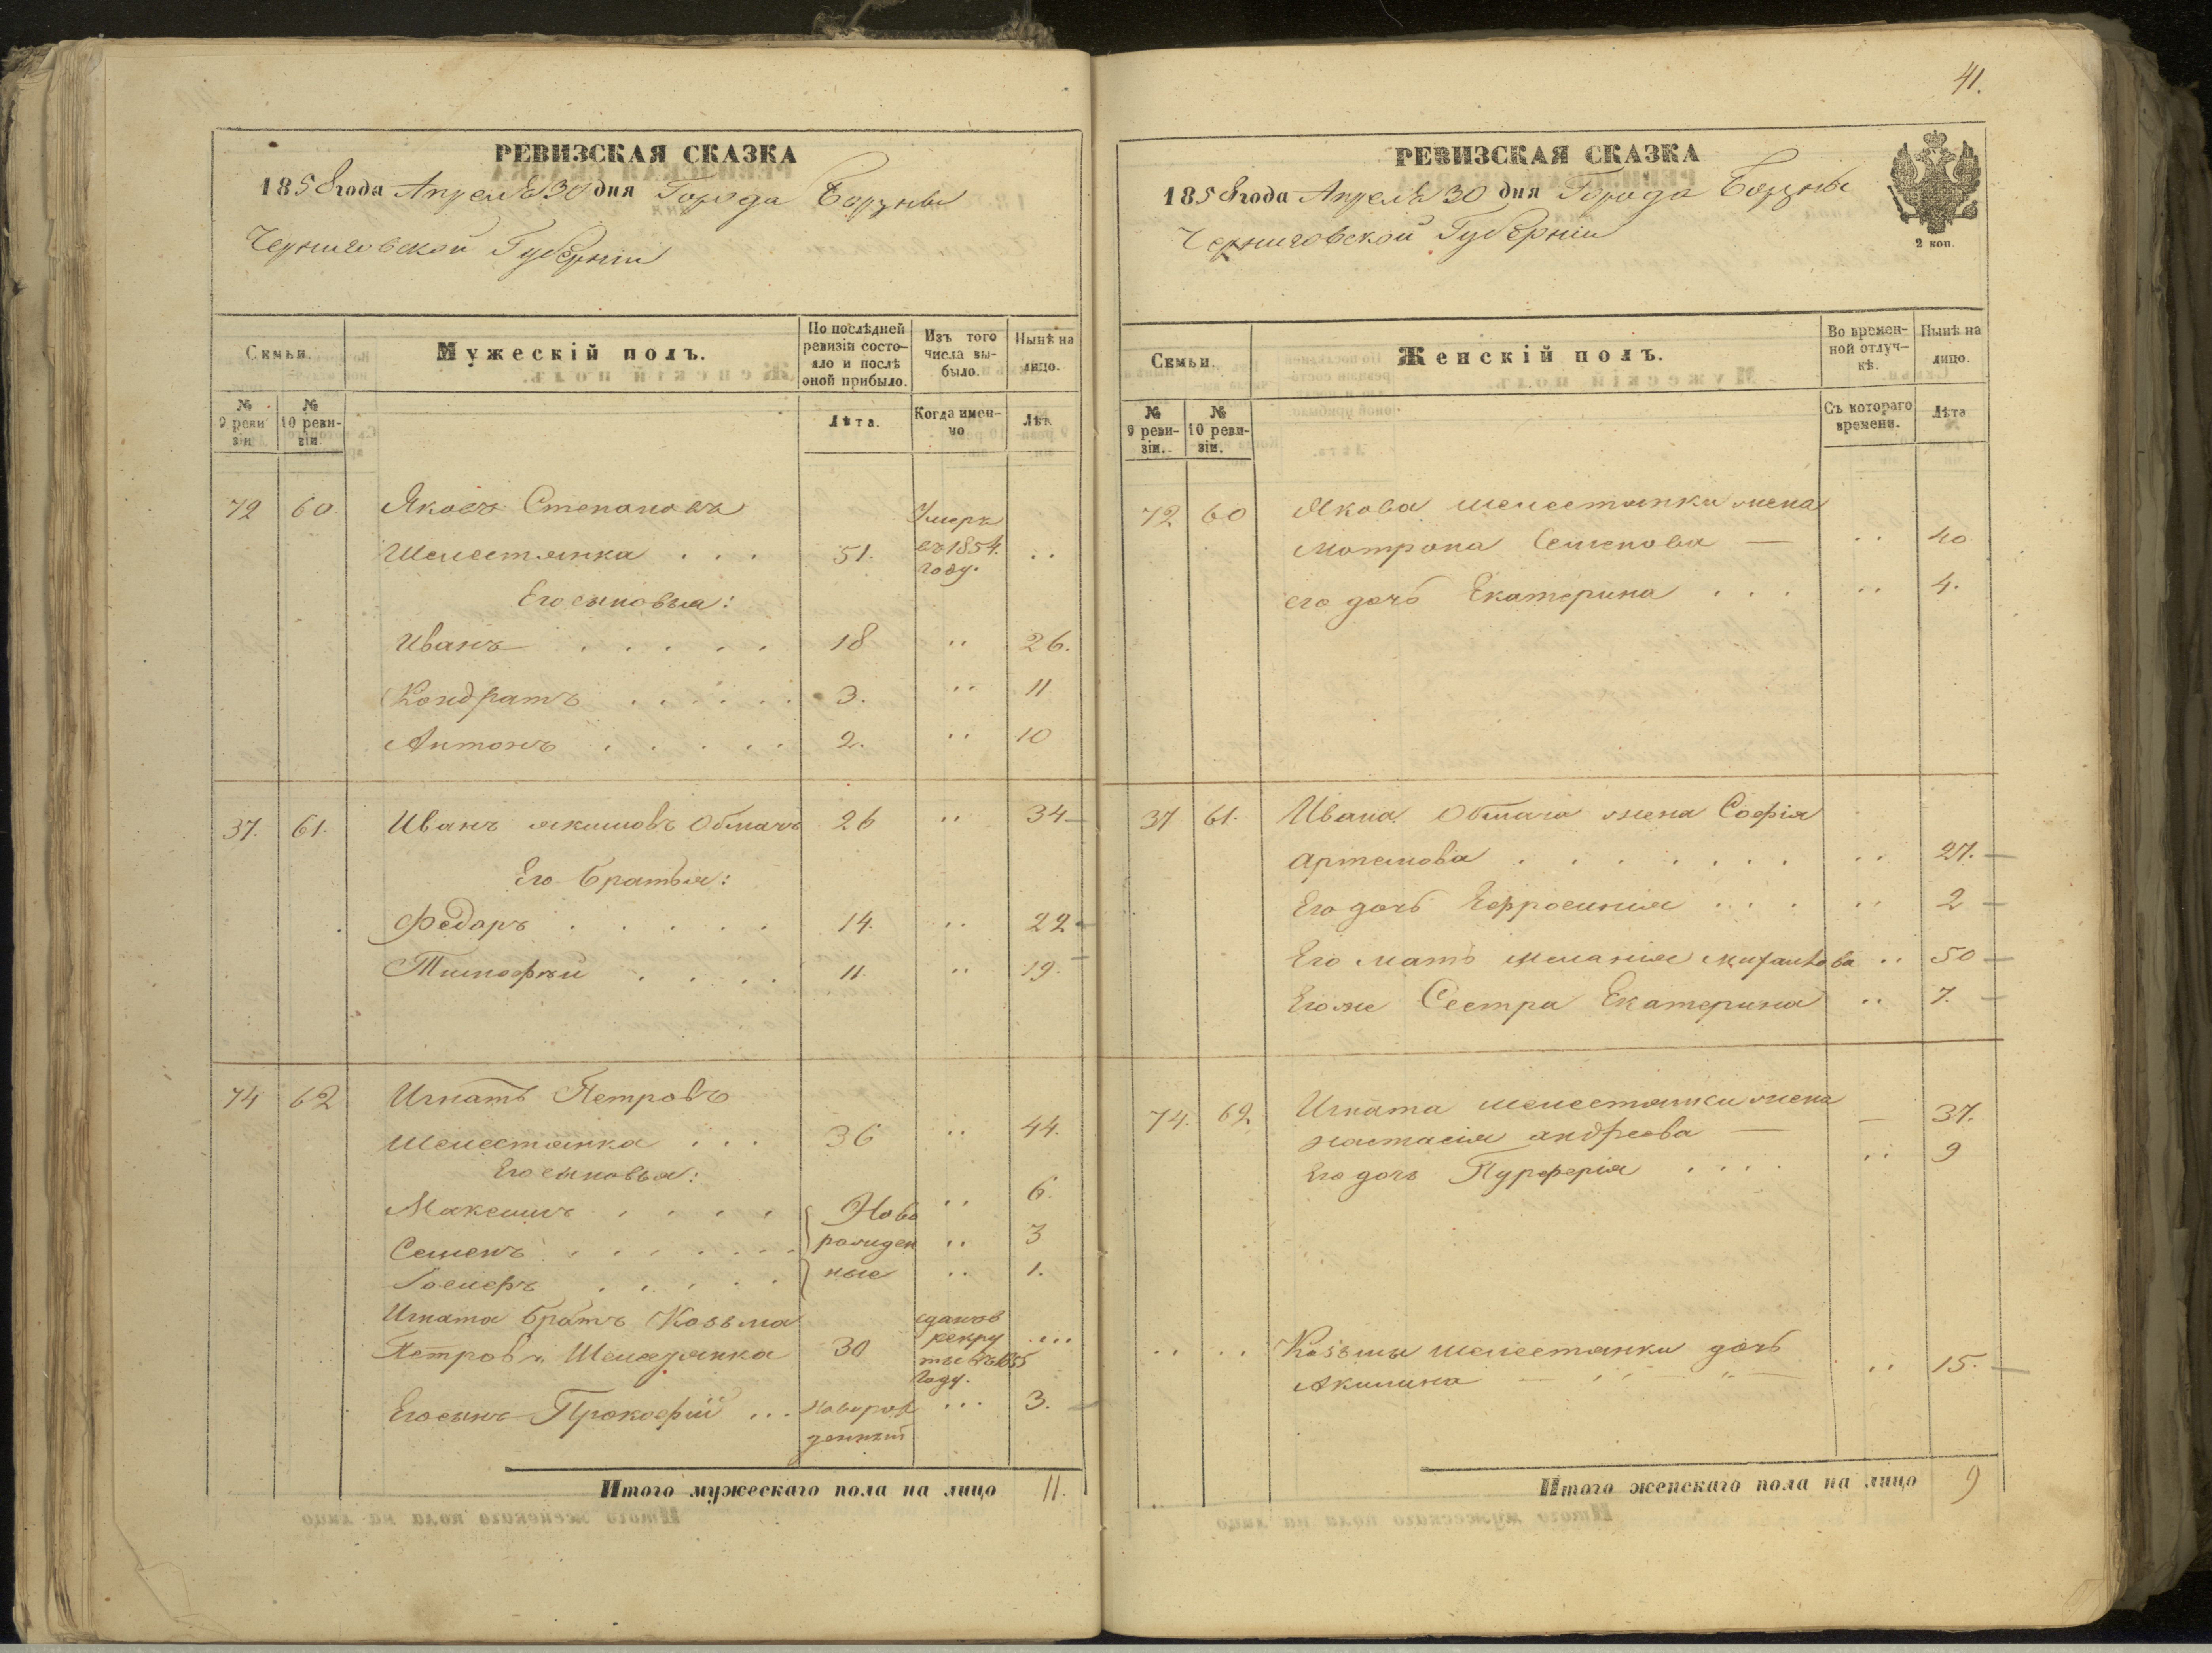 РЕВИЗСКАЯ СКАЗКА
1858 года Апреля 30 дня Города Борзны
Черниговской Губерніи
Семьи.
Мужескій полъ.
По послѣдней ревизіи состояло и послѣ оной прибыло.
Изъ того числа выбыло.
Нынѣ на лицо.
№ 9 ревизіи
№ 10 ревизіи
Лѣта.
Когда именно
Лѣта
72 60 Яковъ Степановъ
Шелестянка . . . 51. Умеръ въ 1854. году. ..
Его сыновья:
Иванъ . . . . . 18 .. 26.
Кондратъ . . . . . 3. .. 11
Антонъ . . . . . 2. .. 10
37. 61. Иванъ якимовъ Обмачъ 26 .. 34
Его братья:
Федоръ . . . . . 14. .. 22
Тимофѣй . . . . 11. .. 19.
74 62 Игнатъ Петровъ
Шелестянка . . . 36 .. 44.
Его сыновья:
Максимъ . . . . Ново .. 6.
Семенъ . . . . . . рожден .. 3
ные .. 1.
Игната братъ Козьма
Петровъ Шелестянка 30 сданъ въ рекруты въ 1855 году. ...
Его сынъ Прокофій ... Новорожденный ... 3.
Итого мужескаго пола на лицо 11.
41.
РЕВИЗСКАЯ СКАЗКА
1858 года Апреля 30 дня Города Борзны
Черниговской Губерніи
2 коп.
Семьи.
Женскій полъ.
Во временной отлучкѣ.
Нынѣ на лицо.
№ 9 ревизіи.
№ 10 ревизіи.
Съ котораго времени.
Лѣта
72 60 Якова шелестянки жена
Мотрона Семенова — .. 40
его дочь Екатерина . . . .. 4.
37 61. Ивана Обмача жена Софія
артемова . . . . . . . .. 27.
Его дочь Ефросинія . . . .. 2
Его мать меланія михайлова .. 50
Его же Сестра Екатерина .. 7.
74. 62. Игната шелестянки жена
настасія андреева — — 37.
Его дочь Пурферія . . . . .. 9
.. .. Козьмы шелестянки дочь
Акилина — .. 15.
Итого женскаго пола на лицо 9